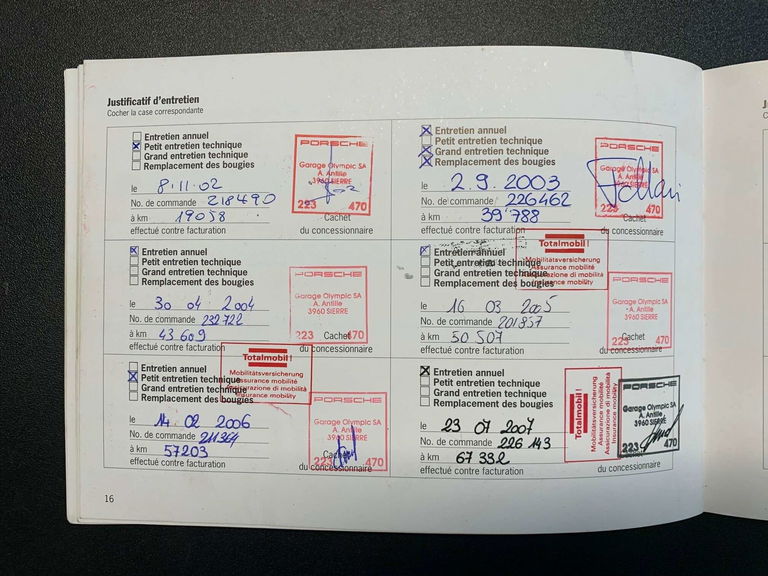 Justificatif d'entretien
Cocher la case correspondante
Entretien annuel
Petit entretien technique
Grand entretien technique
Remplacement des bougies
le 8.11.02
No. de commande 218490
à km 19058
effectué contre facturation
PORSCHE
Garage Olympic SA
A. Antille
3960 SIERRE
223 470
Cachet
du concessionnaire
Entretien annuel
Petit entretien technique
Grand entretien technique
Remplacement des bougies
le 2.9.2003
No. de commande 226462
à km 39'788
effectué contre facturation
PORSCHE
Garage Olympic SA
A. Antille
3960 SIERRE
223 470
Cachet
du concessionnaire
Entretien annuel
Petit entretien technique
Grand entretien technique
Remplacement des bougies
le 30 04 2004
No. de commande 232722
à km 43609
effectué contre facturation
PORSCHE
Garage Olympic SA
A. Antille
3960 SIERRE
223 470
Cachet
du concessionnaire
Entretien annuel
Petit entretien technique
Grand entretien technique
Remplacement des bougies
Totalmobil!
Mobilitätsversicherung
Assurance mobilité
Assicurazione di mobilità
Insurance mobility
le 16 03 2005
No. de commande 201857
à km 50 507
effectué contre facturation
PORSCHE
Garage Olympic SA
A. Antille
3960 SIERRE
223 470
Cachet
du concessionnaire
Entretien annuel
Petit entretien technique
Grand entretien technique
Remplacement des bougies
Totalmobil!
Mobilitätsversicherung
Assurance mobilité
Assicurazione di mobilità
Insurance mobility
le 14 02 2006
No. de commande 211364
à km 57203
effectué contre facturation
PORSCHE
Garage Olympic SA
A. Antille
3960 SIERRE
223 470
Cachet
du concessionnaire
Entretien annuel
Petit entretien technique
Grand entretien technique
Remplacement des bougies
le 23 07 2007
No. de commande 226 143
à km 67 332
effectué contre facturation
Totalmobil!
Mobilitätsversicherung
Assurance mobilité
Assicurazione di mobilità
Insurance mobility
PORSCHE
Garage Olympic SA
A. Antille
3960 SIERRE
223 470
du concessionnaire
16